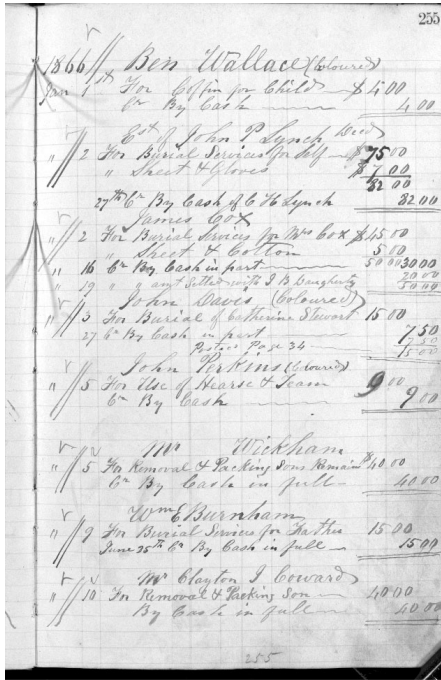 255
1866 Ben Wallace (Coloured)
Jan 1st For Coffin for Child $4.00
Cr By Cash 4.00
Est of John P Lynch Decd
" 2 For Burial Services for Self $75.00
" Sheet & Gloves $7.00
82.00
27th Cr By Cash of C H Lynch 82.00
James Cox
" 2 For Burial Services for Mrs Cox $45.00
" Sheet & Cotton 5.00
" 16 Cr By Cash in part 50.00 30.00
" 19 " " amt settled with J B Daugherty 20.00
50.00
John Davis (Coloured)
" 3 For Burial of Catherine Stewart 15.00
27 Cr By Cash in part 7.50
Posted Page 34 7.50
15.00
John Perkins (Coloured)
" 5 For Use of Hearse & Team 9.00
Cr By Cash 9.00
Mr Wickham
" 5 For Removal & Packing Sons Remains $40.00
Cr By Cash in full 40.00
Wm E Burnham
" 9 For Burial Services for Father 15.00
June 25th Cr By Cash in full 15.00
Mr Clayton J Coward
" 10 For Removal & Packing Son 40.00
By Cash in full 40.00
255